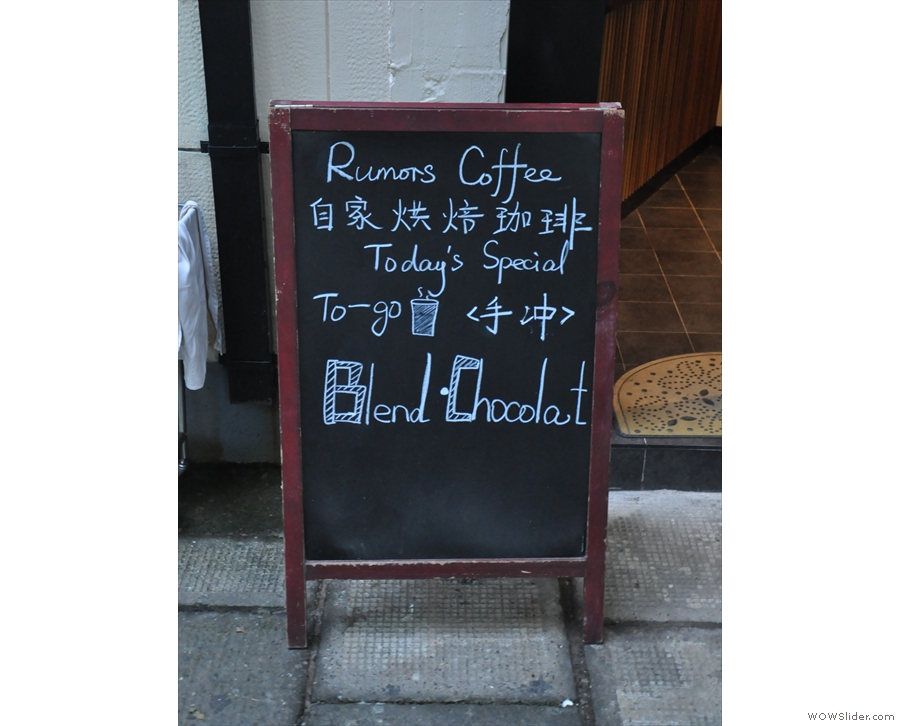 Rumors Coffee
自家烘焙珈琲
Today's Special
To-go <手冲>
Blend·Chocolat
WOWSlider.com